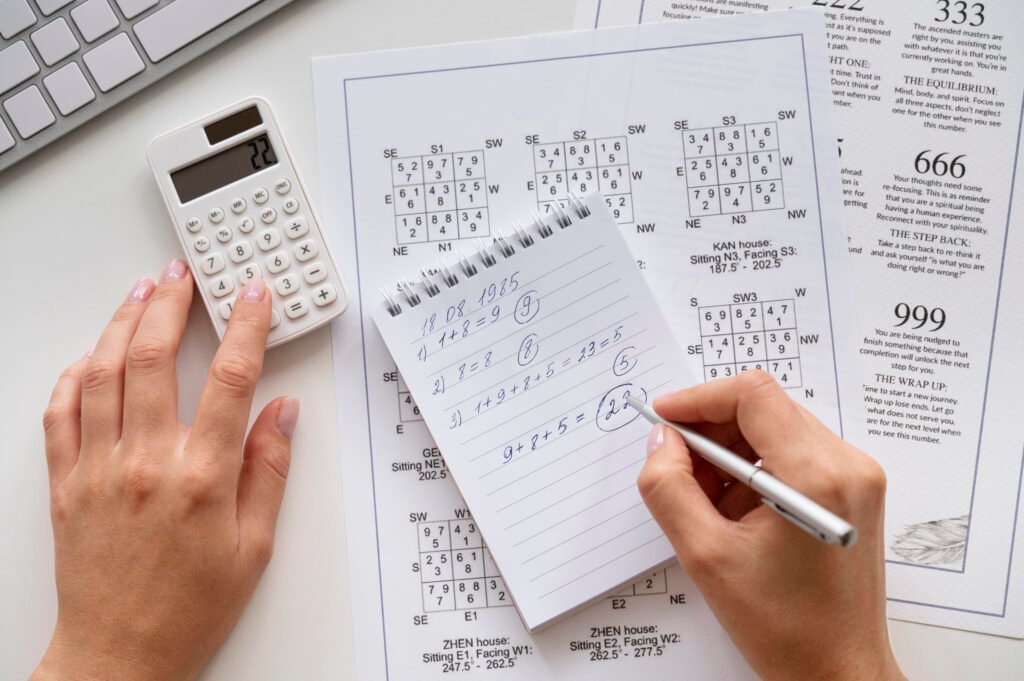 22
M+
M-
MR
MC
MC
%
√
OFF
CE
7
8
9
÷
4
5
6
×
3
−
=
+
18.08.1985
1) 1+8=9 9
2) 8=8 8
3) 1+9+8+5=23=5 5
9+8+5= 22
SE S1 SW
5 2 9 7 7 9
7 3 5
E 6 1 4 3 2 5 W
6 8 1
1 2 8 8 3 4
2 4 9
NE N1
SE S2 SW
3 4 8 8 1 6
7
E 2 5 W
NW
SE S3 SW
3 4 8 8 1 6
7 3 5
E 2 5 4 3 6 1 W
6 8 1
7 9 9 7 5 2
2 4
NE N3 NW
KAN house:
Sitting N3, Facing S3:
187.5° - 202.5°
S SW3 W
6 9 8 2 4 7
3 5 1
SE 1 4 2 5 3 6 NW
7 8 9
9 3
N
E
Sitting NE1
202.5°
SW W1
9 7 4 3
5 1
S 5 2 6 1
3 8
7 9 8 8 3
7 6 2
SE E1
E2 NE
ZHEN house:
Sitting E1, Facing W1:
247.5° - 262.5°
ZHEN house:
Sitting E2, Facing W2:
262.5° - 277.5°
are manifesting
quickly! Make sure
focusing
222
Everything is
just as it's supposed
you are on the
path.
HT ONE:
time. Trust in
Don't think of
want when you
number.
333
The ascended masters are
right by you, assisting you
with whatever it is that you're
currently working on. You're in
great hands.
THE EQUILIBRIUM:
Mind, body, and spirit. Focus on
all three aspects, don't neglect
one for the other when you see
this number.
ahead
are for
getting
666
Your thoughts need some
re-focusing. This is as reminder
that you are a spiritual being
having a human experience.
Reconnect with your spirituality.
THE STEP BACK:
Take a step back to re-think it
and ask yourself "is what you are
doing right or wrong?"
999
You are being nudged to
finish something because that
completion will unlock the next
step for you.
THE WRAP UP:
Time to start a new journey.
Wrap up lose ends. Let go
what does not serve you.
are for the next level when
you see this number.